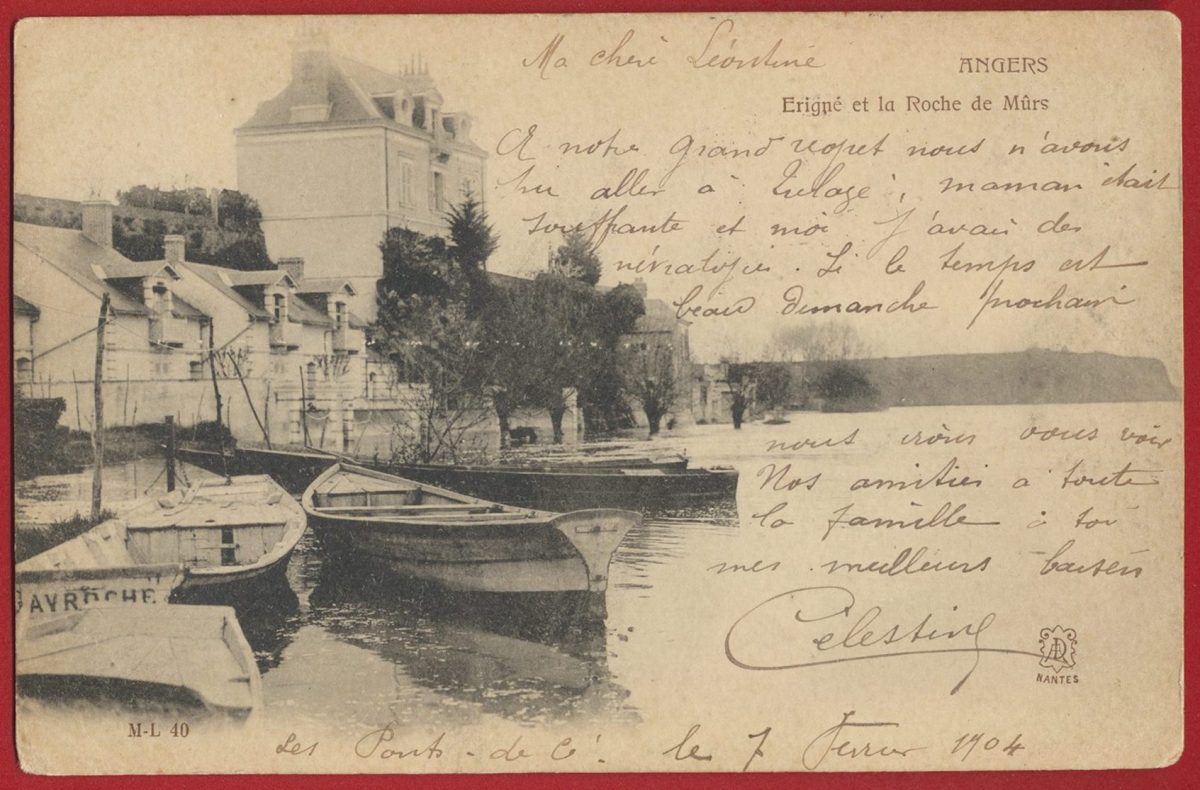 Ma chère Léontine
ANGERS
Erigné et la Roche de Mûrs
A notre grand regret nous n'avons
pu aller à Trélazé, maman était
souffrante et moi j'avais des
névralgies. Si le temps est
beau dimanche prochain
nous irons vous voir
Nos amitiés à toute
la famille à toi
mes meilleurs baisers
Célestine
NANTES
GAVROCHE
M-L 40
Les Ponts-de-Cé. le 7 Fevrier 1904